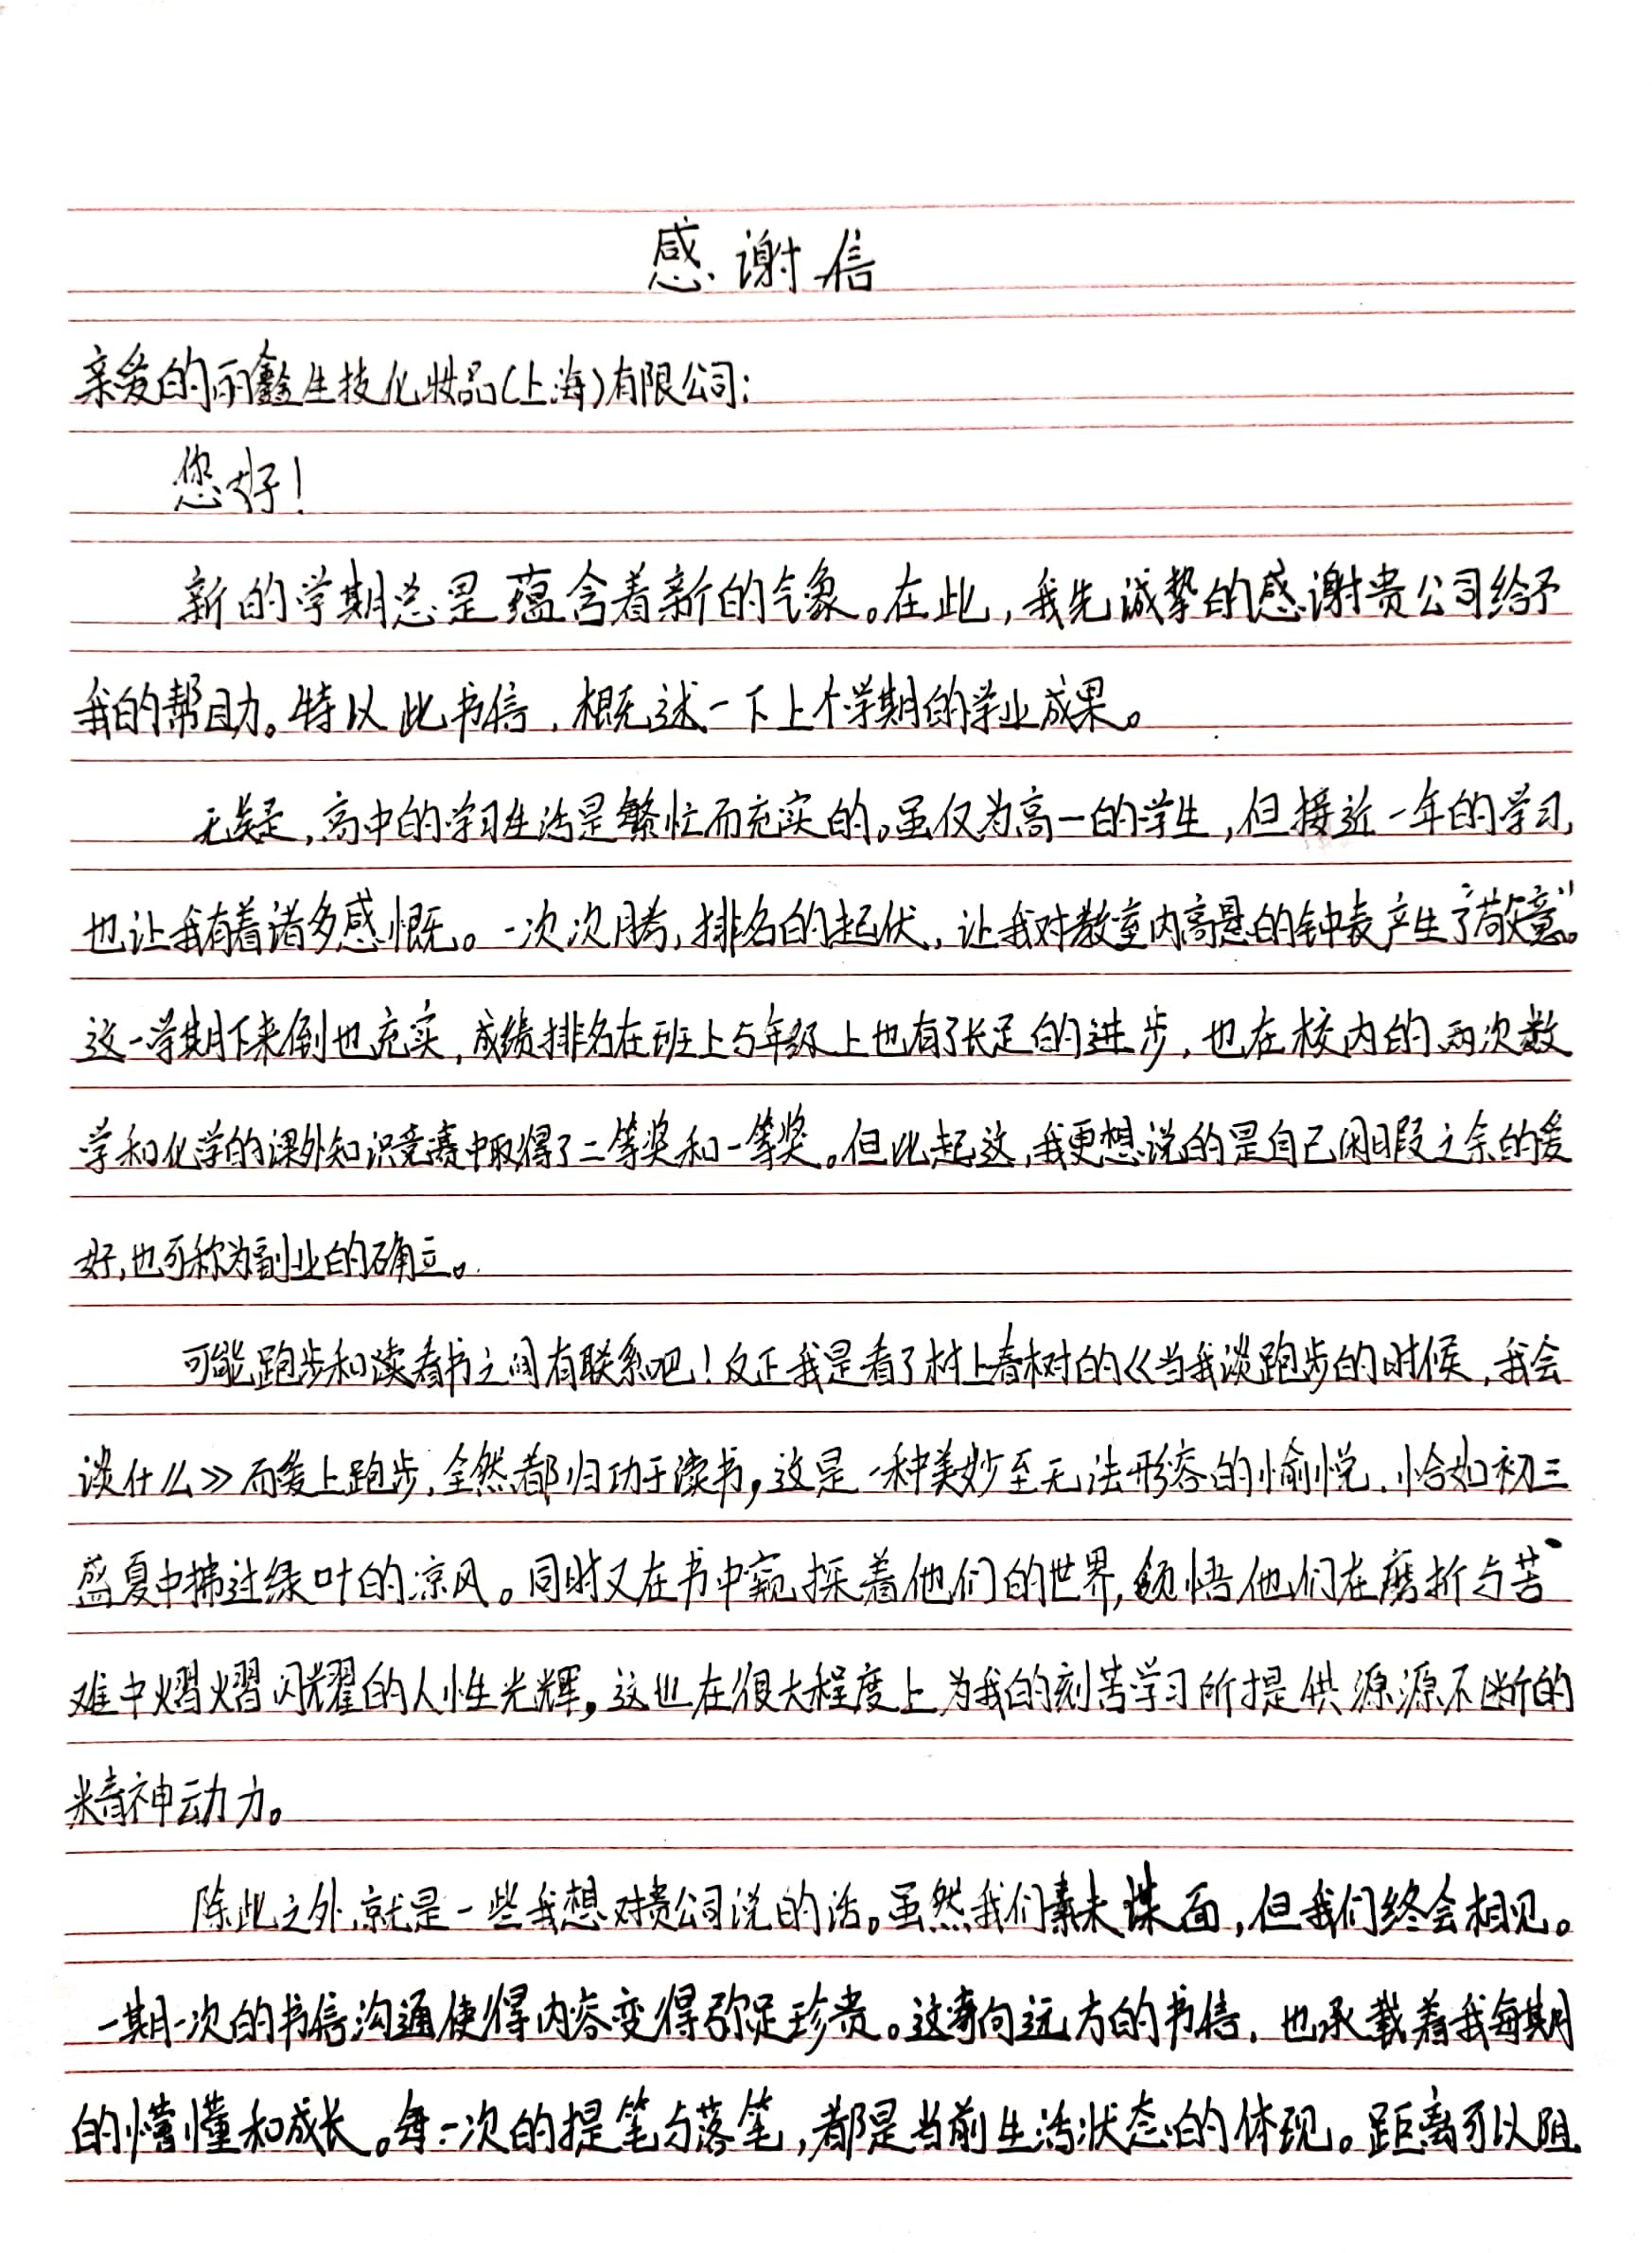 感谢信
亲爱的丽鑫生技化妆品(上海)有限公司:
您好!
新的学期总是蕴含着新的气象。在此,我先诚挚的感谢贵公司给予
我的帮助。特以此书信,概述一下上个学期的学业成果。
无疑,高中的学习生活是繁忙而充实的。虽仅为高一的学生,但接近一年的学习,
也让我有着诸多感慨。一次次月考,排名的起伏,让我对教室内高悬的钟表产生了“敬意”。
这一学期下来倒也充实,成绩排名在班上与年级上也有了长足的进步,也在校内的两次数
学和化学的课外知识竞赛中取得了二等奖和一等奖。但比起这,我更想说的是自己闲暇之余的爱
好,也可称为副业的确立。
可能跑步和读书之间有联系吧!反正我是看了村上春树的《当我谈跑步的时候,我会
谈什么》而爱上跑步,全然都归功于读书,这是一种美妙至无法形容的愉悦,恰如初三
盛夏中拂过绿叶的凉风。同时又在书中窥探着他们的世界,领悟他们在磨折与苦
难中熠熠闪耀的人性光辉,这也在很大程度上为我的刻苦学习所提供源源不断的
精神动力。
除此之外,就是一些我想对贵公司说的话。虽然我们素未谋面,但我们终会相见。
一期一次的书信沟通使得内容变得弥足珍贵。这寄向远方的书信,也承载着我每期
的懵懂和成长。每一次的提笔与落笔,都是当前生活状态的体现。距离可以阻